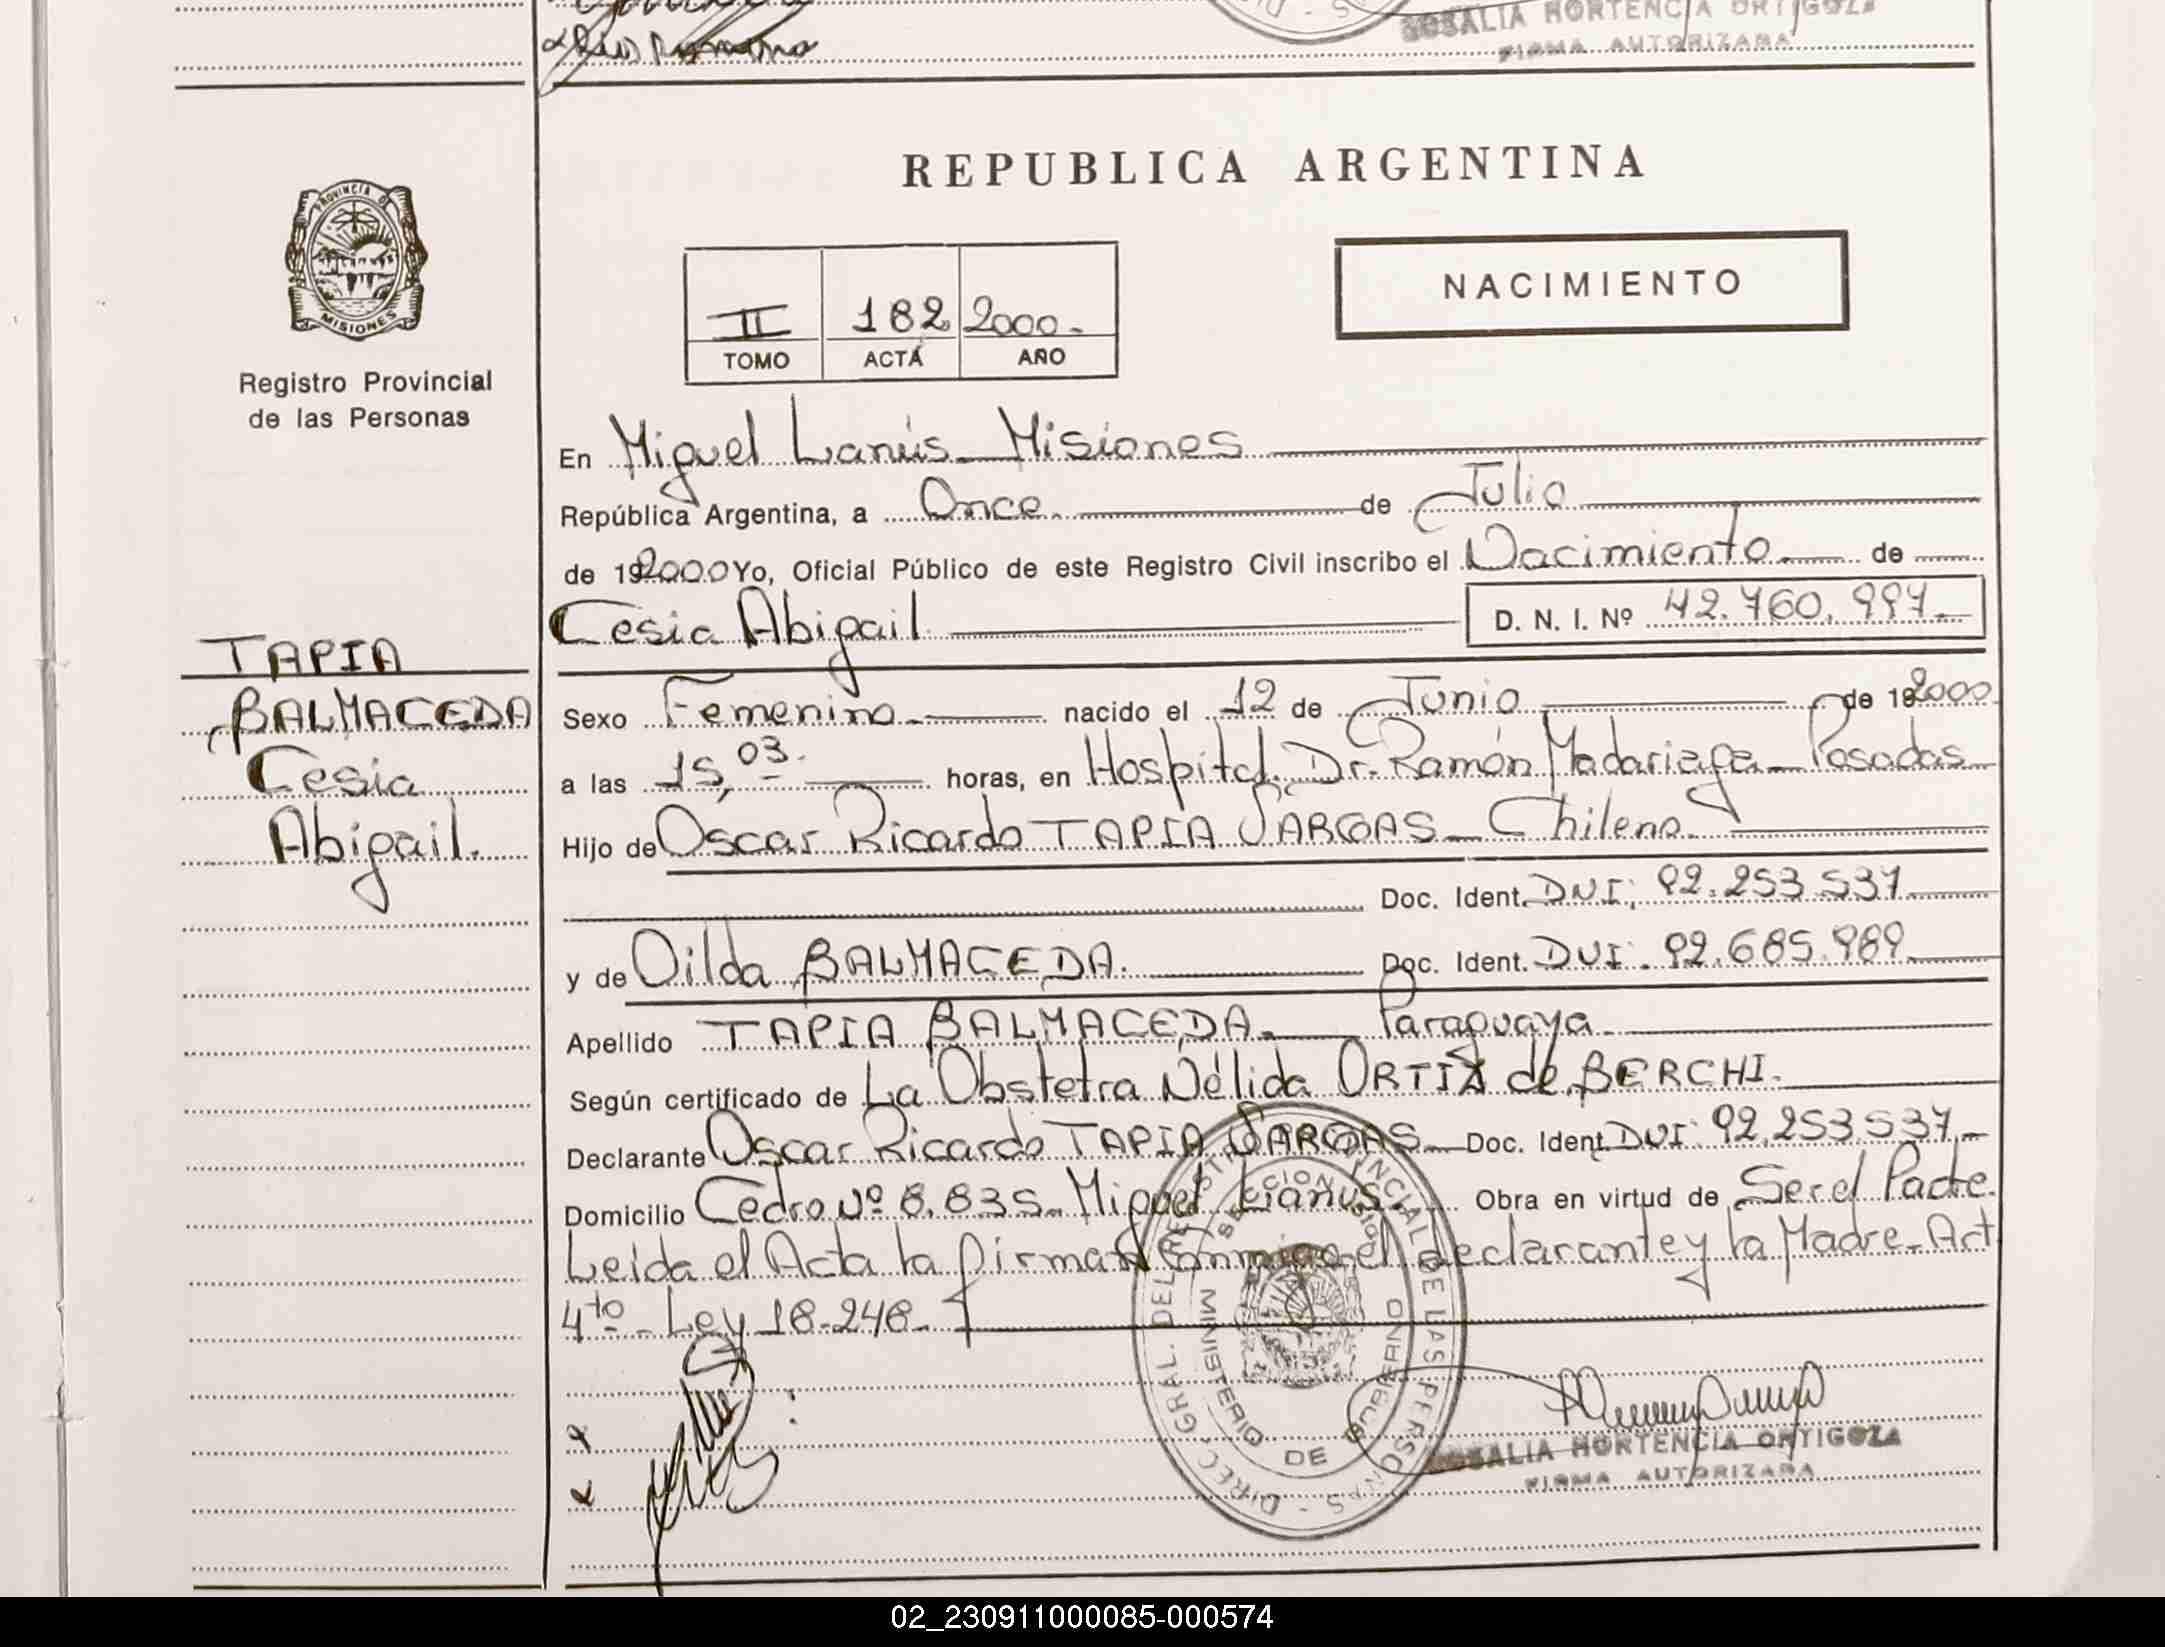 ROSALIA HORTENCIA ORTIGOZA
FIRMA AUTORIZADA
PROVINCIA DE
MISIONES
Registro Provincial
de las Personas
TAPIA
BALMACEDA
Cesia
Abigail.
REPUBLICA ARGENTINA
NACIMIENTO
II 182 2000.-
TOMO ACTA AÑO
En Miguel Lanús - Misiones
República Argentina, a Once. de Julio
de 192000 Yo, Oficial Público de este Registro Civil inscribo el Nacimiento de
Cesia Abigail. D. N. I. Nº 42.760.997.-
Sexo Femenino.- nacido el 12 de Junio de 192000
a las 15,03. horas, en Hospital Dr. Ramón Madariaga - Posadas
Hijo de Oscar Ricardo TAPIA VARGAS - Chileno.
Doc. Ident. DNI: 92.253.537.
y de Oilda BALMACEDA. Doc. Ident. DNI: 92.685.989.
Apellido TAPIA BALMACEDA.- Paraguaya.
Según certificado de La Obstetra Nélida ORTIZ de BERCHI.
Declarante Oscar Ricardo TAPIA VARGAS - Doc. Ident. DNI: 92.253.537.-
Domicilio Cedro Nº 8.835 - Miguel Lanús. Obra en virtud de Ser el Padre.
Leída el Acta la firman conmigo el declarante y la Madre - Art
4to - Ley 18-248.-
DIREC. GRAL. DEL REGISTRO PROVINCIAL DE LAS PERSONAS
MINISTERIO DE GOBIERNO
ROSALIA HORTENCIA ORTIGOZA
FIRMA AUTORIZADA
02_230911000085-000574